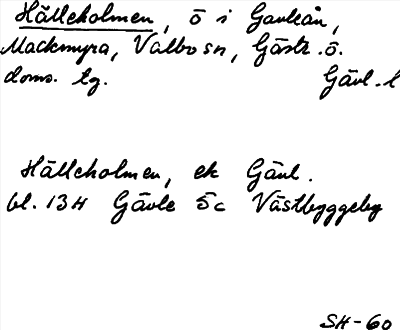 Hälleholmen, ö i Gavleån,
Mackmyra, Valbo sn, Gästr. ö.
doms. tg. Gävl. l
Hälleholmen, ek Gävl.
bl. 13H Gävle 5c Västbyggeby
SH-60